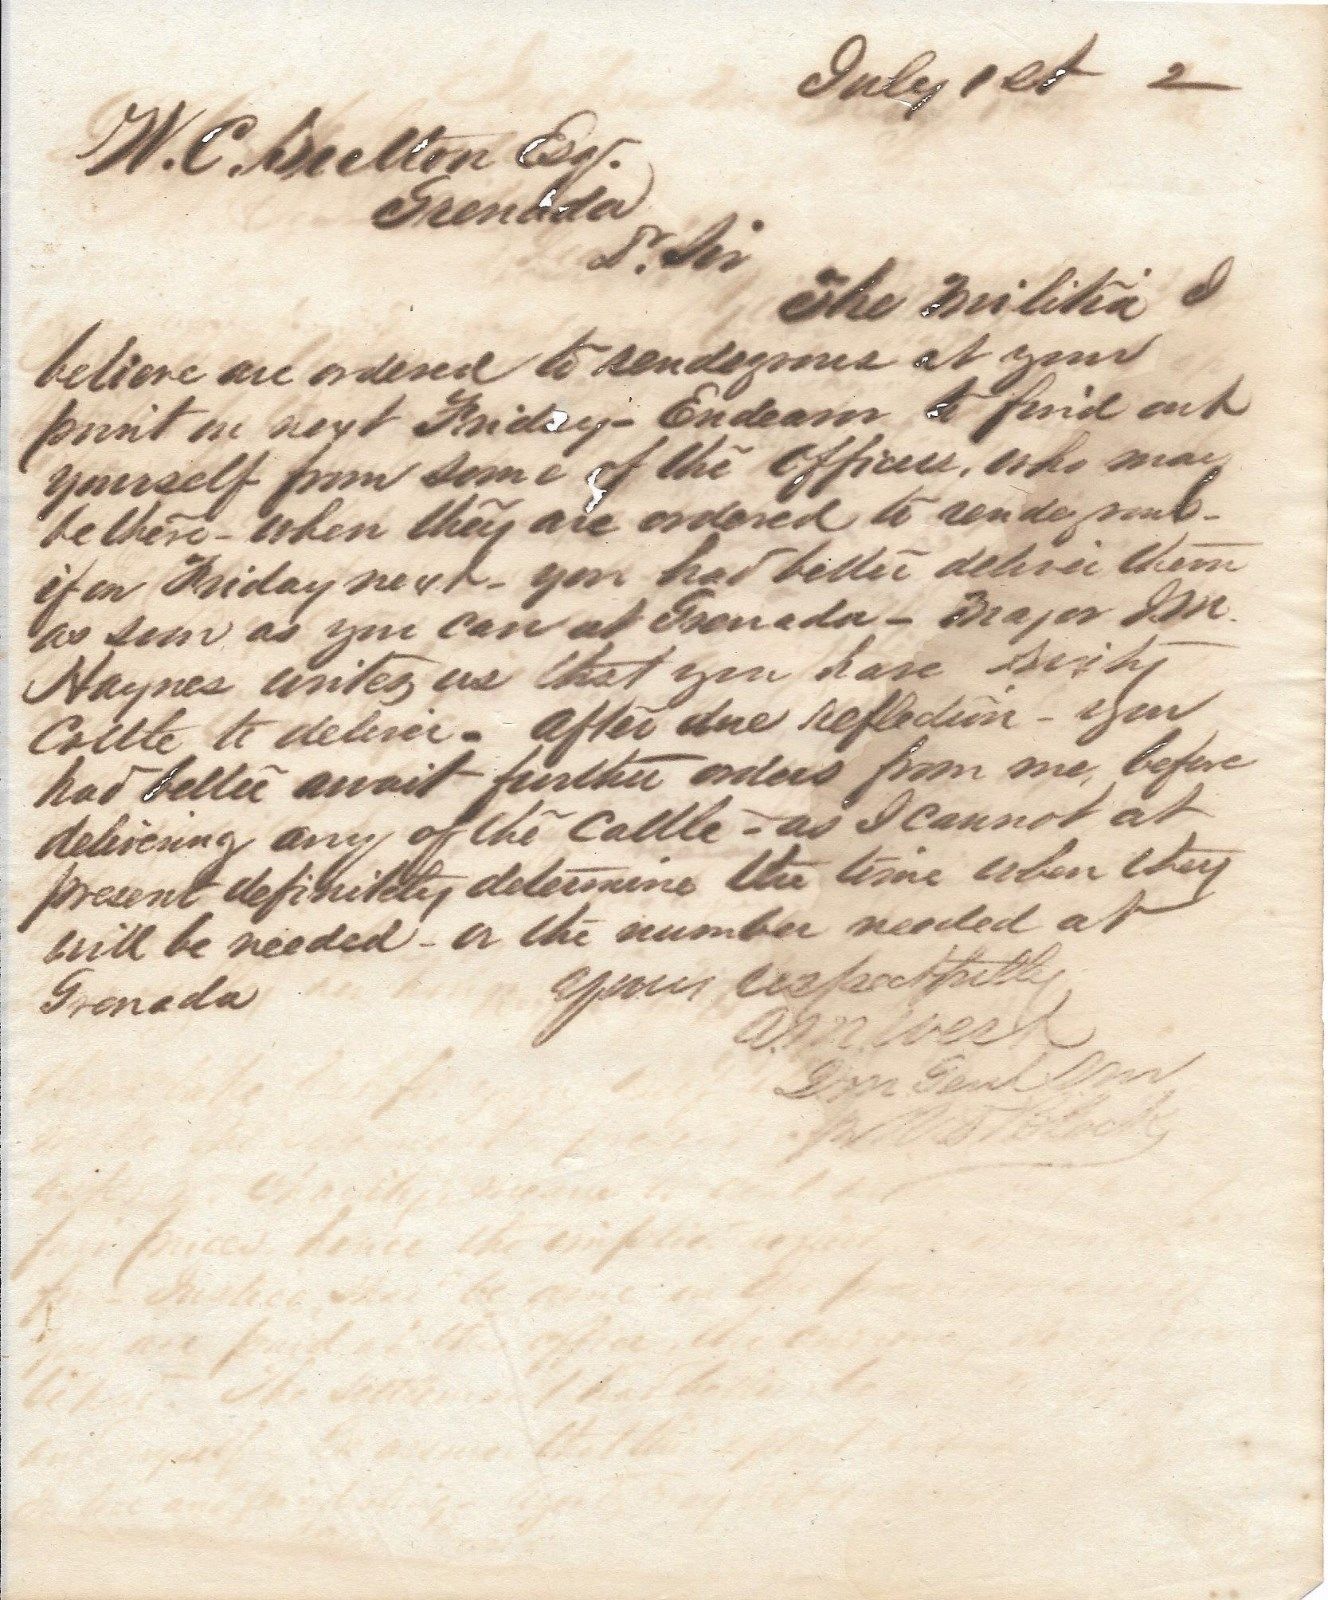 July 1st 2
W. C. Melton Esqr.
Grenada
Dr. Sir
The Militia I
believe are ordered to rendezvous at your
point on next Friday - Endeavor to find out
yourself from some of the Officers, who may
be there - when they are ordered to rendezvous -
if on Friday next - you had better deliver them
as soon as you can at Grenada - Major J.M.
Haynes writes us that you have
Cattle to deliver. After due reflection - you
had better await further orders from me, before
delivering any of the Cattle - as I cannot at
present definitely determine the time when they
will be needed - or the number needed at
Grenada
Yours respectfully
A.M. West
Genl